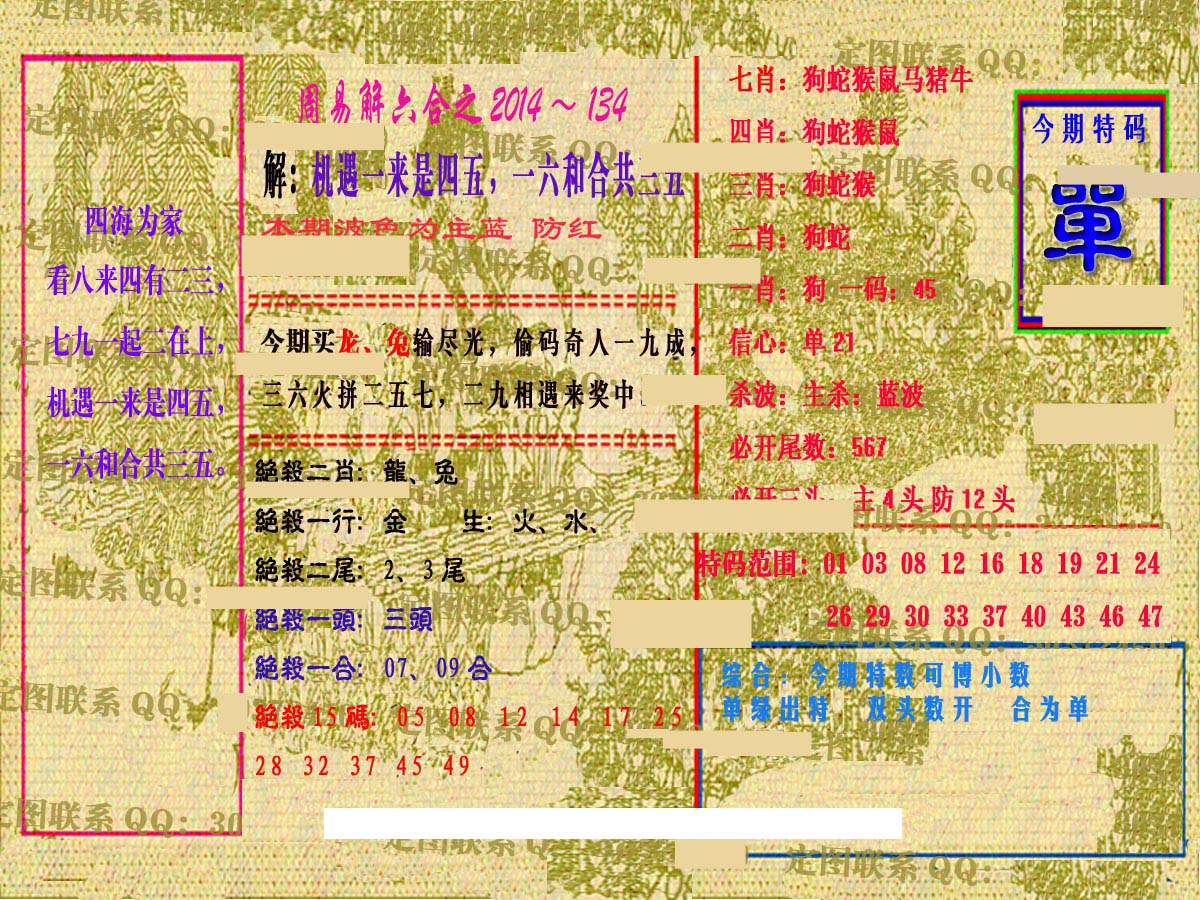 四海为家
看八来四有二三，
七九一起二在上，
机遇一来是四五，
一六和合共三五。
周易解六合之2014～134
解：机遇一来是四五，一六和合共三五
本期波色为主蓝 防红
今期买龙、兔输尽光，偷码奇人一九成，
三六火拼二五七，二九相遇来奖中
絕殺二肖：龍、兔
絕殺一行：金 生：火、水、
絕殺二尾：2、3尾
絕殺一頭：三頭
絕殺一合：07、09合
絕殺15碼：05 08 12 14 17 25
28 32 37 45 49
七肖：狗蛇猴鼠马猪牛
四肖：狗蛇猴鼠
三肖：狗蛇猴
二肖：狗蛇
一肖：狗 一码：45
信心：单21
杀波：主杀：蓝波
必开尾数：567
必开三头：主4头防12头
特码范围：01 03 08 12 16 18 19 21 24
26 29 30 33 37 40 43 46 47
今期特码
單
综合：今期特数可博小数
单绿出特 双头数开 合为单
定图联系QQ：